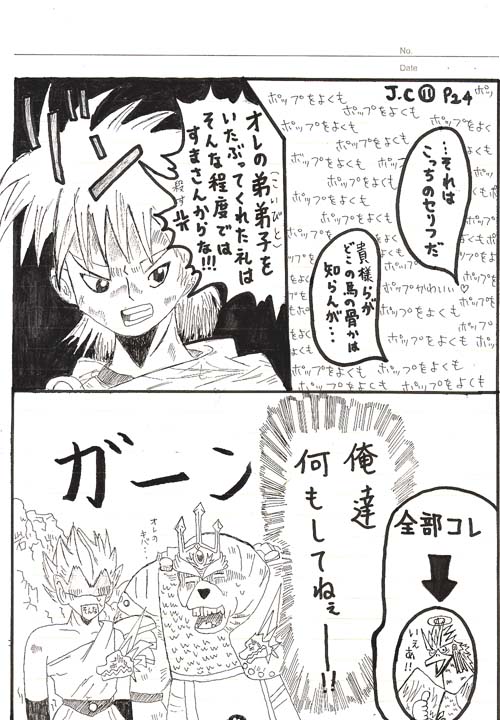 No.
Date
J.C⑪ P24
…それは
こっちのセリフだ
貴様らが
どこの馬の骨かは
知らんが…
ポップをよくも
ポップをよくも
ポップをよくも
ポップをよくも
ポップをよくも
ポップをよくも
ポップをよくも
ポップをよくも
ポップをよくも
ポップをよくも
ポップかわいい♡
ポップをよくも
ポップをよくも
ポップをよくも
ポップをよくも
ポップをよくも
オレの弟弟子を
(こいびと)
いたぶってくれた礼は
そんな程度では
すまさんからな!!!
殺す
俺達
何もしてねぇー!!
ガーン
全部コレ
いぇあ!!
オレの
そんな